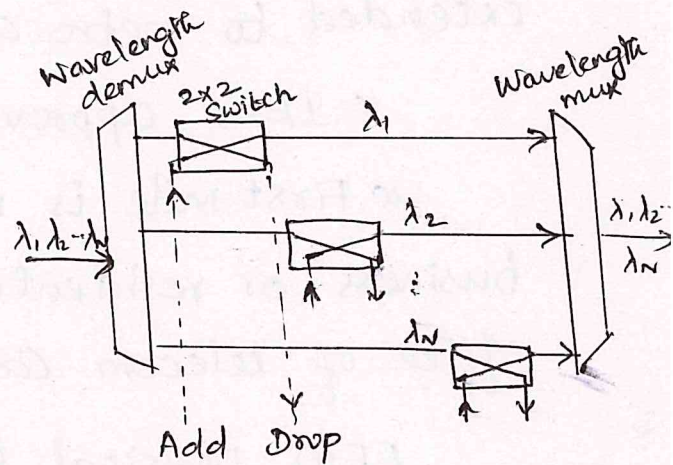 Wavelength
demux
2x2
Switch
Wavelength
mux
λ1
λ1 λ2 -- λN
λ2
λ1 λ2 --
λN
:
λN
Add Drop